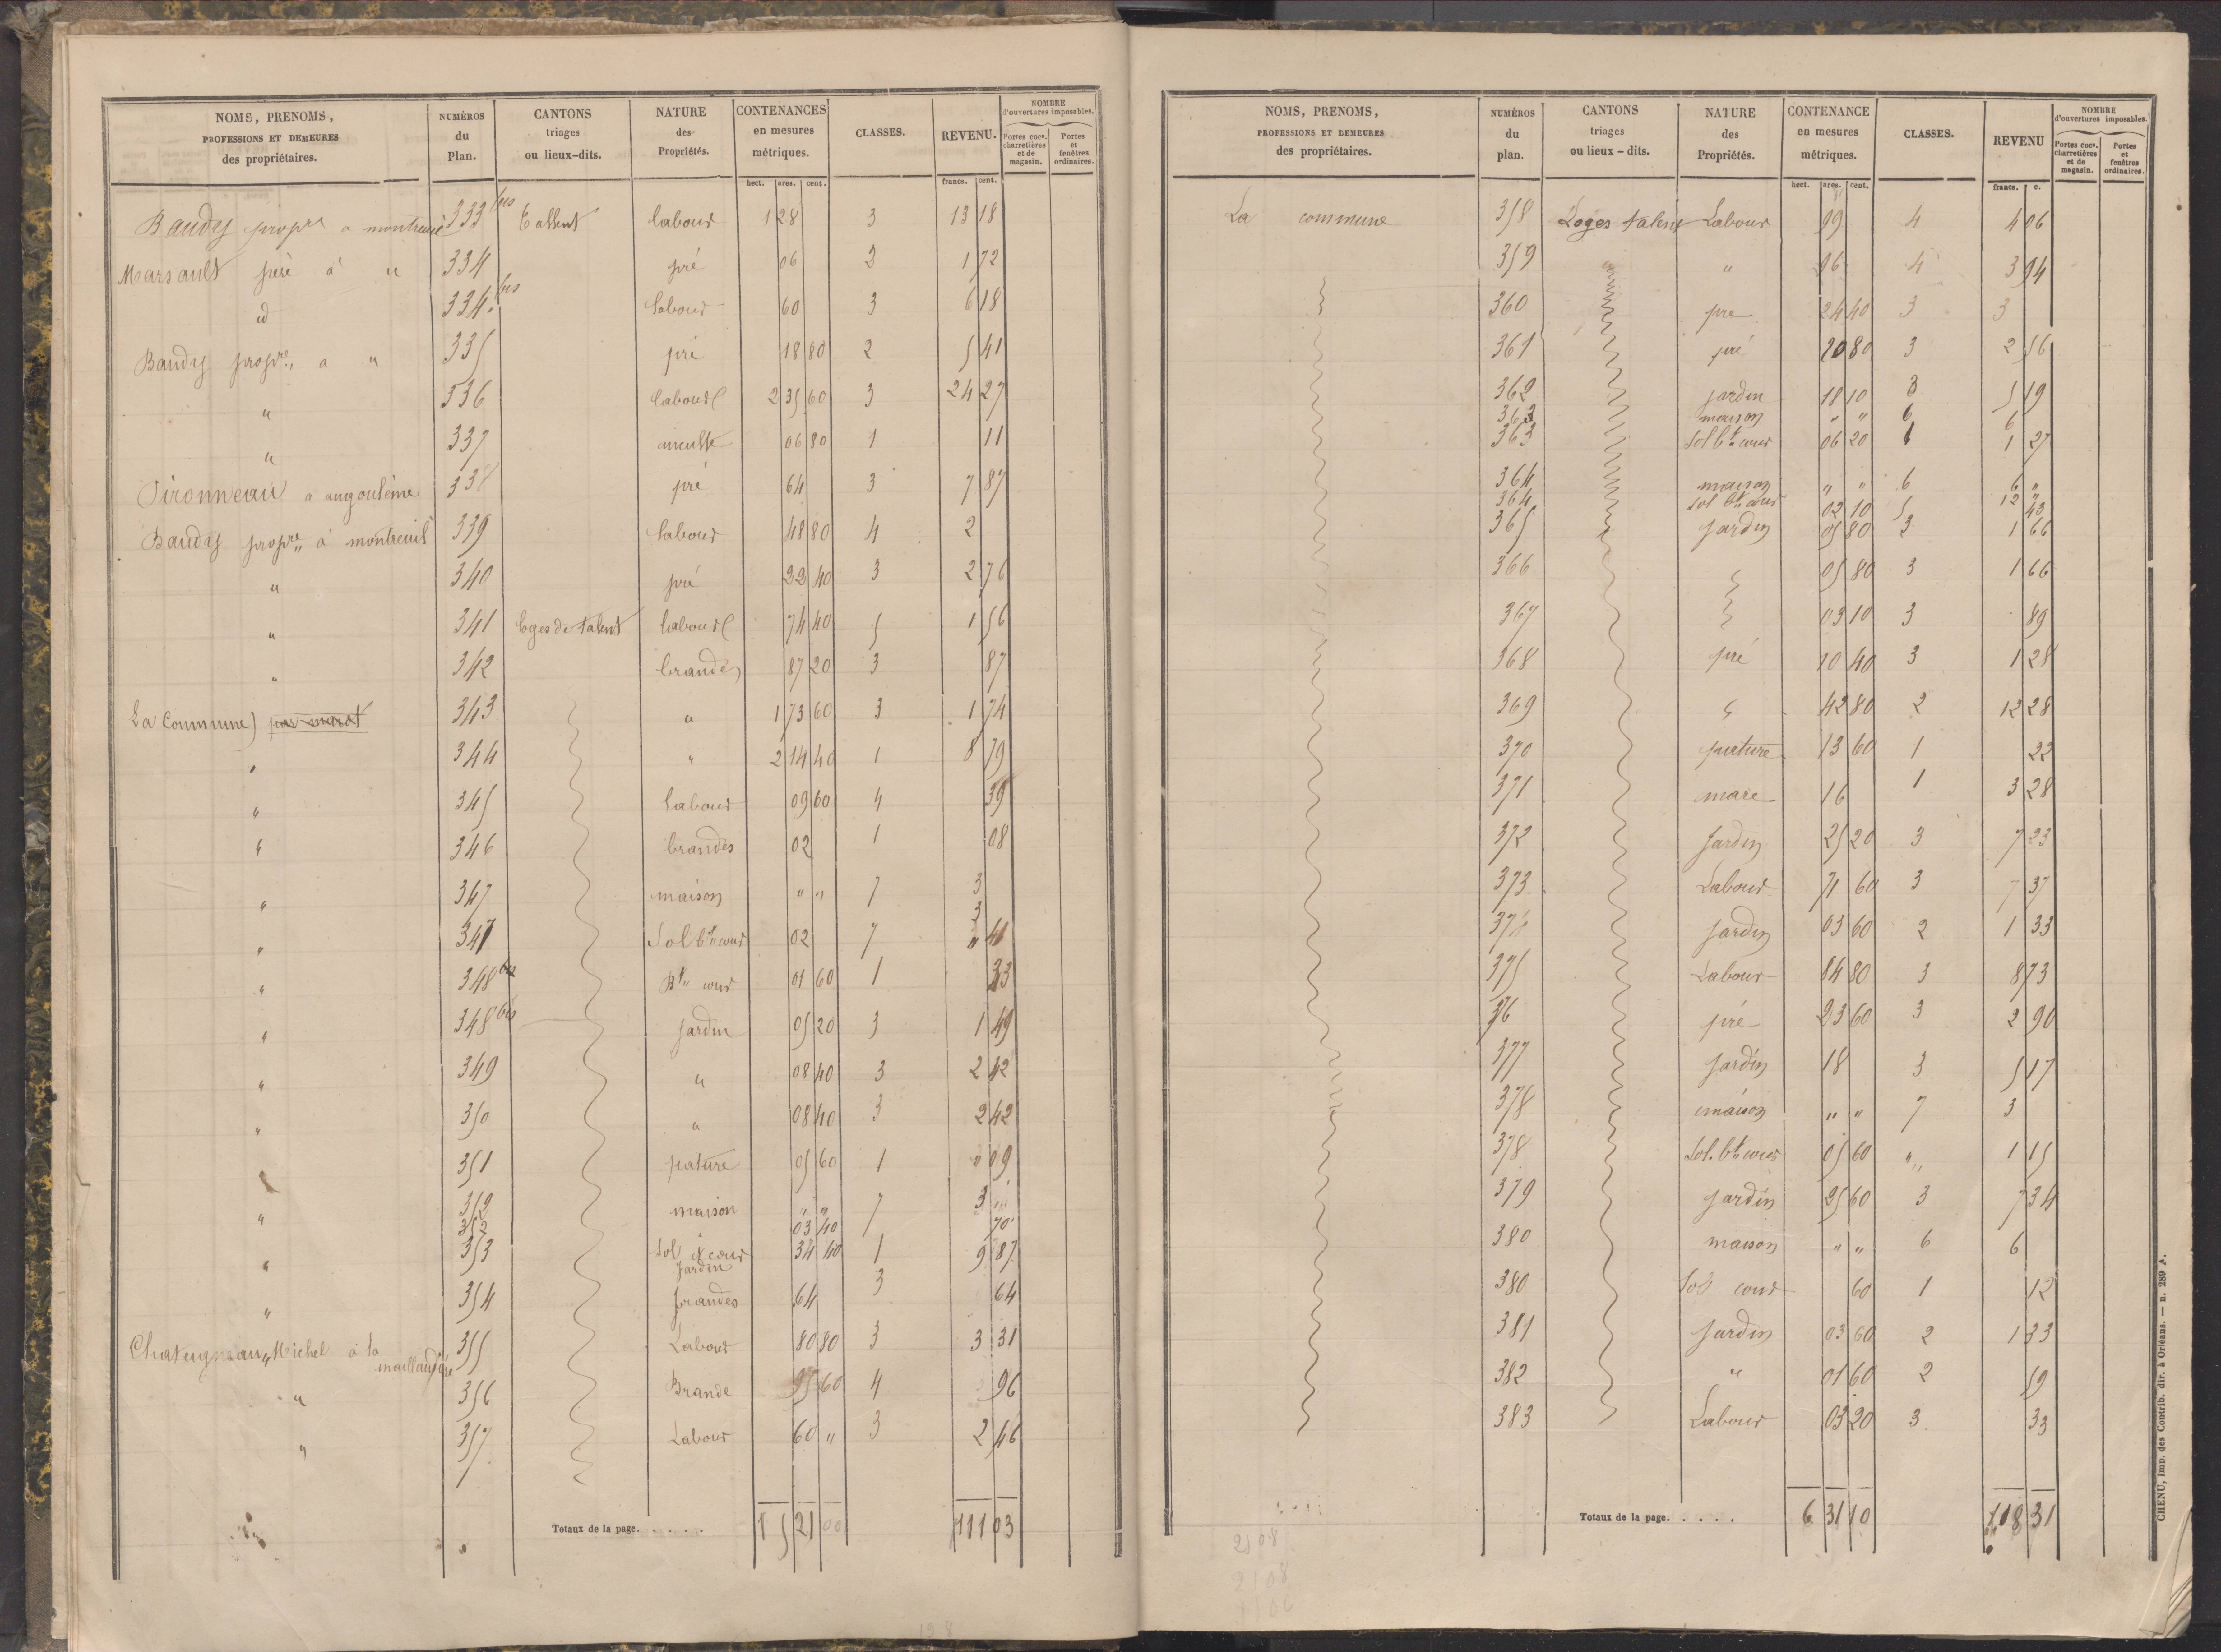 NOMS, PRENOMS,
PROFESSIONS ET DEMEURES
des propriétaires.
NUMÉROS
du
Plan.
CANTONS
triages
ou lieux-dits.
NATURE
des
Propriétés.
CONTENANCES
en mesures
métriques.
CLASSES.
REVENU.
NOMBRE
d'ouvertures imposables.
Portes coc.
charretières
et de
magasin.
Portes
et
fenêtres
ordinaires.
hect. ares. cent. francs. cent.
Baudy propre a montreuil 333 bis Tallent labour 1 28 3 13 18
Marsault père à " 334 pré 06 2 1 72
id 334 bis labour 60 3 6 18
Baudy propre a " 335 pré 18 80 2 5 41
" 336 labour 2 35 60 3 24 27
" 337 06 80 1 11
Pironneau a angoulême 338 pré 64 3 7 87
Baudy propre à montreuil 339 labour 48 80 4 2
" 340 pré 22 40 3 2 76
" 341 loges de talent labour 74 40 5 1 56
" 342 brandes 87 20 3 87
La Commune) 343 " 1 73 60 3 1 74
" 344 " 2 14 40 1 8 79
" 345 labour 09 60 4 39
" 346 brandes 02 1 08
" 347 maison " " 7 3
" 347 Sol bt cour 02 7 " 41
" 348 Bt cour 01 60 1 33
" 348 bis jardin 05 20 3 1 49
" 349 " 08 40 3 2 42
" 350 " 08 40 3 2 42
351 pature 05 60 1 " 09
" 352 maison " " 7 3 "
352 03 40 70
" 353 Sol et cour 34 40 1 9 87
jardin 3
" 354 brandes 64 64
Chateigneau Michel à la maillaudière 355 Labour 80 80 3 3 31
" 356 Brande 95 60 4 96
" 357 Labour 60 " 3 2 46
Totaux de la page. . . . . . 15 21 00 111 03
NOMS, PRENOMS,
PROFESSIONS ET DEMEURES
des propriétaires.
NUMÉROS
du
plan.
CANTONS
triages
ou lieux-dits.
NATURE
des
Propriétés.
CONTENANCE
en mesures
métriques.
CLASSES.
REVENU
NOMBRE
d'ouvertures imposables.
Portes coc.
charretières
et de
magasin.
Portes
et
fenêtres
ordinaires.
hect. ares. cent. francs. c.
La commune 358 Loges talent Labour 99 4 4 06
359 " 96 4 3 94
360 pre 24 40 3 3
361 pré 20 80 3 2 56
362 jardin 18 10 3 5 19
363 maison " " 6 6
363 Sol bt cour 06 20 1 1 27
364 maison " " 6 6 "
364 Sol bt cour 02 10 5 43
365 jardin 05 80 3 1 66
366 05 80 3 1 66
367 03 10 3 89
368 pré 10 40 3 1 28
369 " 42 80 2 12 28
370 pature 13 60 1 22
371 mare 16 1 3 28
372 jardin 25 20 3 7 23
373 Labour 71 60 3 7 37
374 jardin 03 60 2 1 33
375 Labour 84 80 3 8 73
376 pré 23 60 3 2 90
377 jardin 18 3 5 17
378 maison " " 7 3
378 Sol. bt cour 05 60 " 1 15
379 jardin 25 60 3 7 34
380 maison " " 6 6
380 Sol cour 60 1 12
381 jardin 03 60 2 1 33
382 " 01 60 2 59
383 Labour 03 20 3 33
Totaux de la page. . . . . 6 31 10 118 31
CHENU, imp. des Contrib. dir. à Orléans. — n. 289 A.